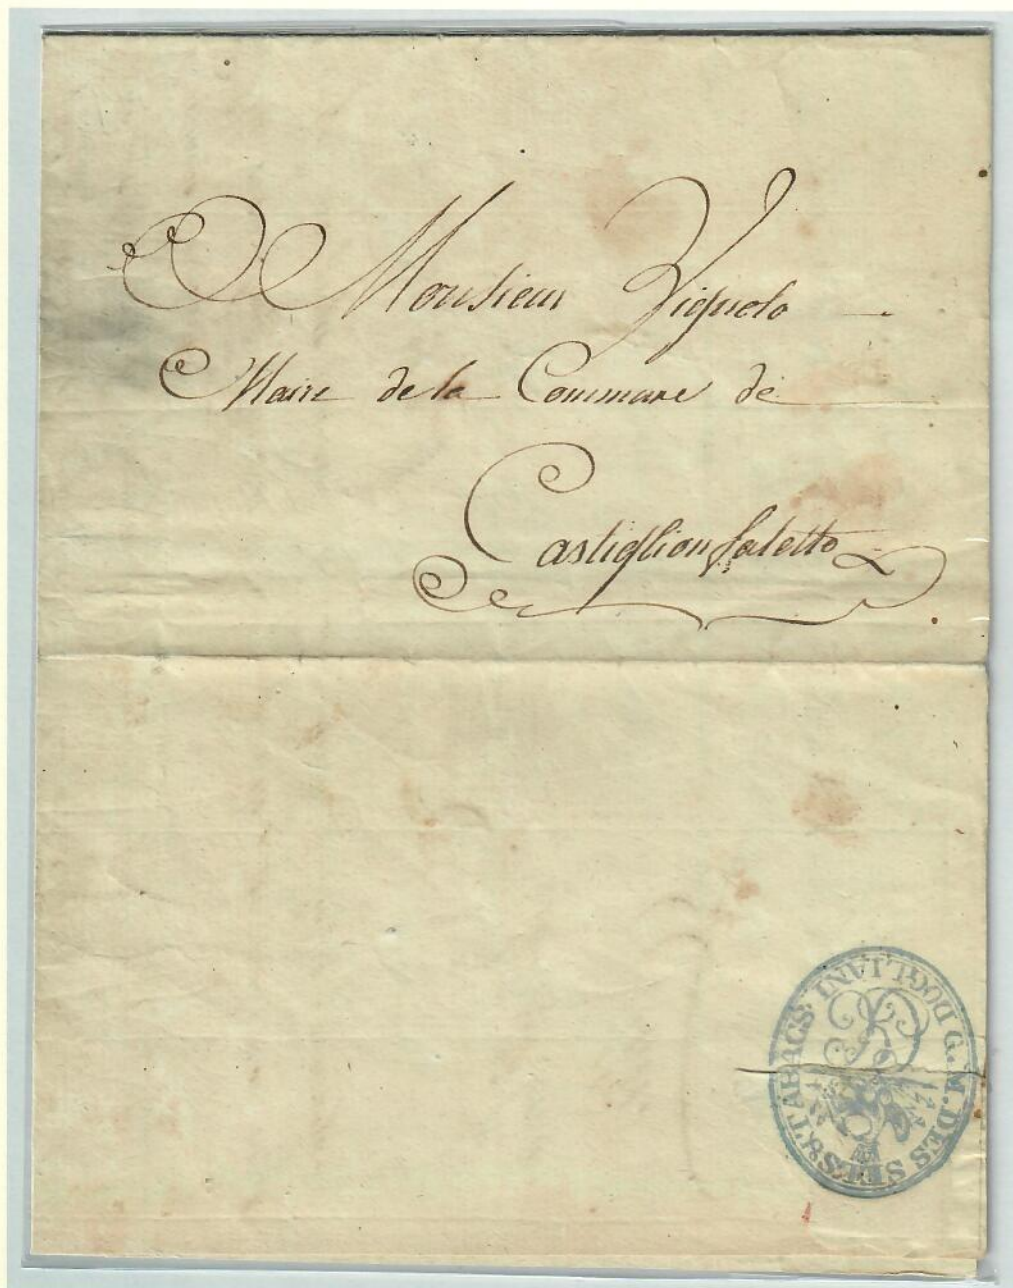 Monsieur Vignolo
Maire de la Commune de
Castiglion faletto
G. M. DES SELS & TABACS.